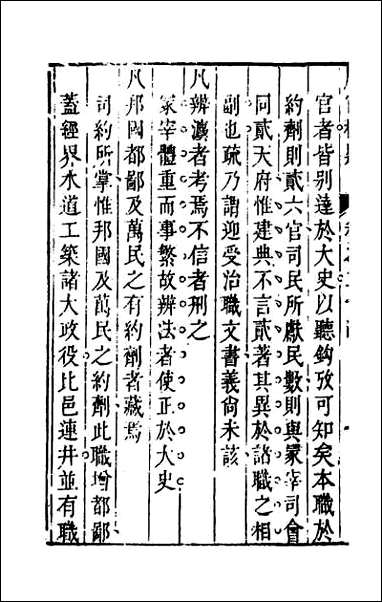 官者皆别達於大史以聽鉤攷可知矣本職於
約劑則貳六官司民所獻民數則與冡宰司會
同貳天府惟建典不言貳著其異於諸職之相
副也疏乃謂迎受治職文書義尙未該
凡辨灋者考焉不信者刑之
冡宰體重而事繁故辨法者使正於大史
凡邦國都鄙及萬民之有約劑者藏焉
司約所掌惟邦國及萬民之約劑此職增都鄙
蓋經界水道工築諸大政役比邑連井並有職